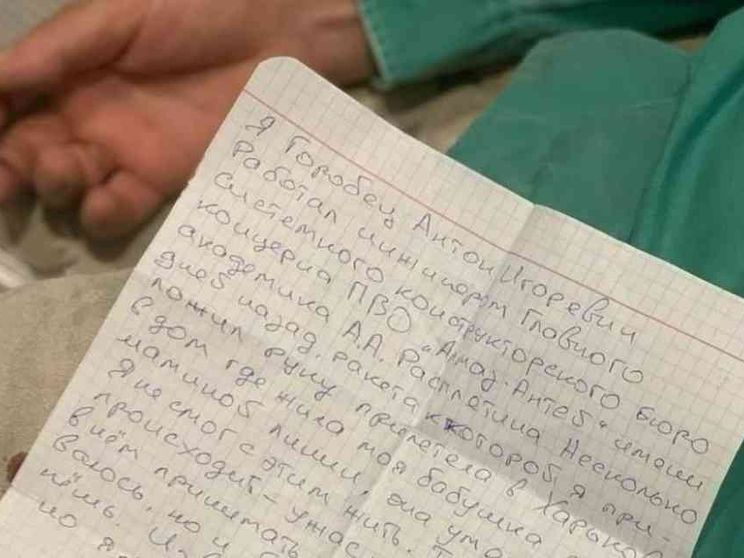 Я Горобец Антон Игоревич
Работал инжинаром Главного
системного конструкторского бюро
концерна ПВО "Алмаз-Антей" имени
академика А.А. Расплетина. Несколько
дней назад, ракета к которой я при-
ложил руку прилетела в Харьков
в дом где жила моя бабушка
маминой линии, она ум
Я не смог с этим жить. Т
происходит – ужас
в нём принимать
валось, но и
нёшь. И
но я